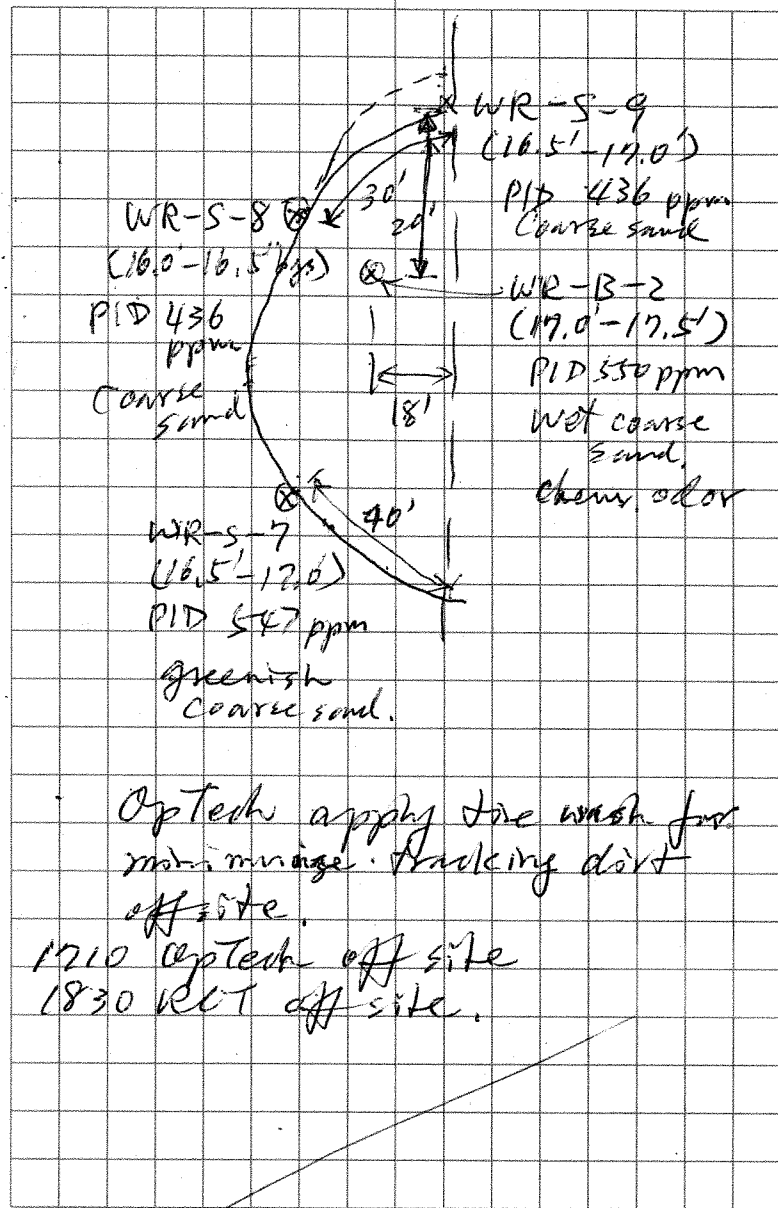 WR-S-9
(16.5'-17.0')
PID 436 ppm
Coarse sand
30'
20'
WR-S-8
(16.0'-16.5' bgs)
PID 436
ppm
Coarse
sand
WR-B-2
(17.0'-17.5')
PID 550 ppm
Wet coarse
sand.
chem. odor
18'
40'
WR-S-7
(16.5'-17.0')
PID 547 ppm
greenish
Coarse sand.
OpTech apply tire wash for
tracking dirt
off site.
1710 OpTech off site
1830 off site.